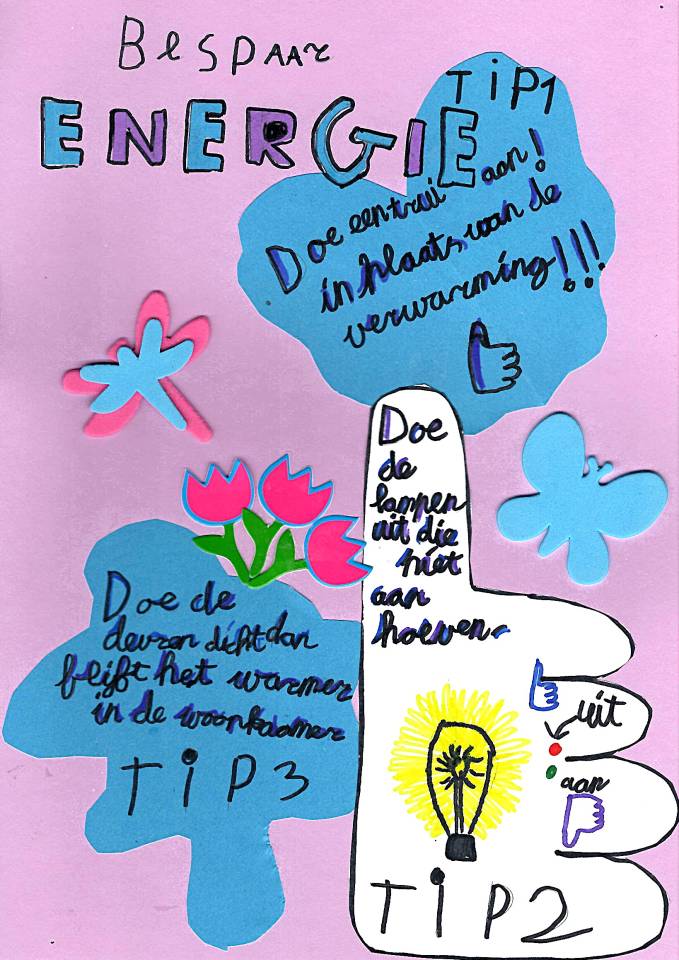 BeSPAAr
ENERGIE
TiP1
Doe een trui aan!
in plaats van de
verwarming!!!
Doe
de
lampen
uit die
niet
aan
hoeven.
uit
aan
TiP2
Doe de
deuren dicht dan
blijft het warmer
in de woonkaamer
TiP3